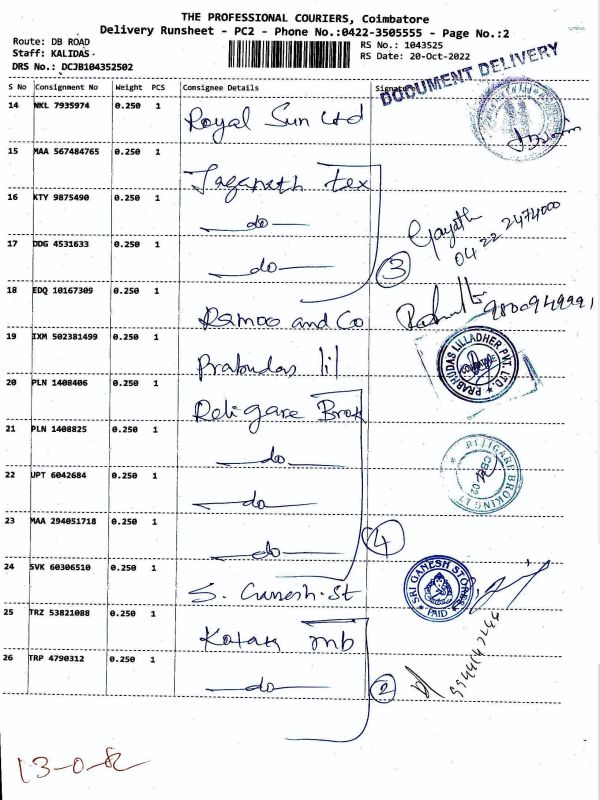 THE PROFESSIONAL COURIERS, Coimbatore
Delivery Runsheet - PC2 - Phone No.:0422-3505555 - Page No.:2
Route: DB ROAD
Staff: KALIDAS
DRS No.: DCJB104352502
RS No.: 1043525
RS Date: 20-Oct-2022
DOCUMENT DELIVERY
S No Consignment No Weight PCS Consignee Details Signature
14 NKL 7935974 0.250 1 Royal Sun Ltd
15 MAA 567484765 0.250 1 Jaganath tex
16 KTY 9875490 0.250 1 do
Gayath
0422 2474000
17 DDG 4531633 0.250 1 do 3
18 EDQ 10167309 0.250 1 Ramoo and Co
9800949991
19 IXM 502381499 0.250 1 Prabudas lil
PRABHUDAS LILLADHER PVT. LTD.
20 PLN 1408406 0.250 1 Religare Brok
21 PLN 1408825 0.250 1 do
RELIGARE BROKING
22 UPT 6042684 0.250 1 do
23 MAA 294051718 0.250 1 do 4
24 SVK 60306510 0.250 1 S. Ganesh. St
SRI GANESH STORES
PAID
25 TRZ 53821088 0.250 1 Kotak mb
26 TRP 4790312 0.250 1 do 2
13-0-